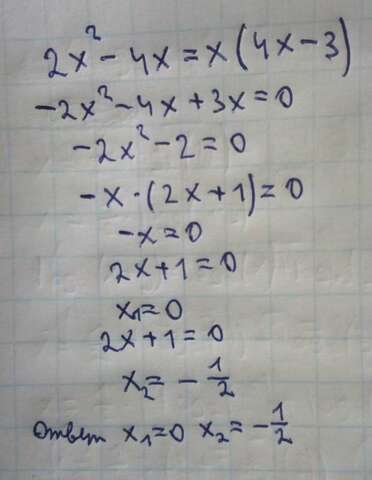 2x² - 4x = x(4x - 3)
-2x² - 4x + 3x = 0
-2x² - 2 = 0
-x · (2x + 1) = 0
-x = 0
2x + 1 = 0
x₁ = 0
2x + 1 = 0
x₂ = - 1/2
Ответ x₁ = 0 x₂ = - 1/2